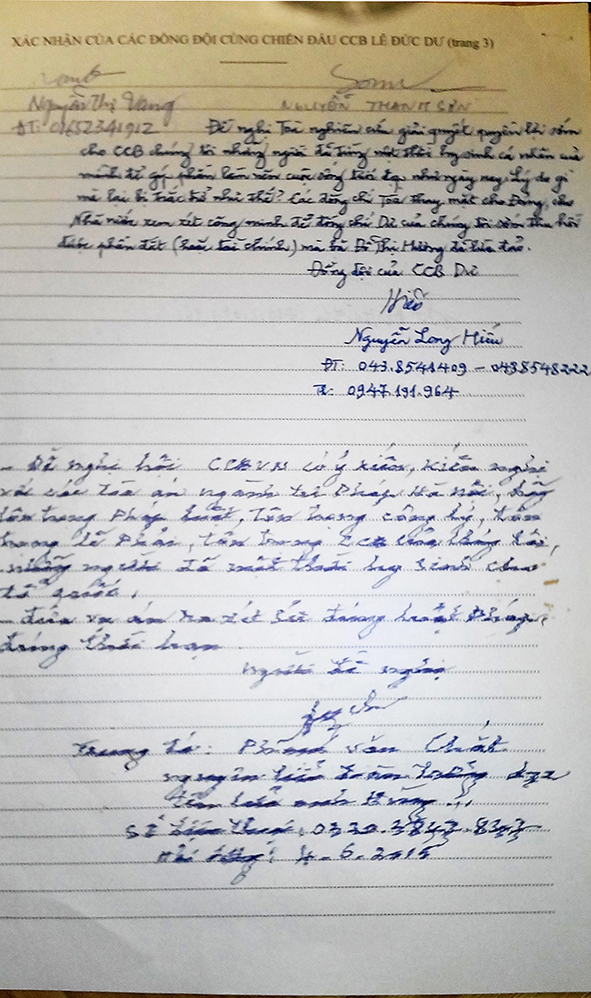 XÁC NHẬN CỦA CÁC ĐỒNG ĐỘI CÙNG CHIẾN ĐẤU CCB LÊ ĐỨC DƯ (trang 3)
Nguyễn Thị Vang NGUYỄN THANH SƠN
ĐT: 01652341912 Đề nghị Toà nghiên cứu giải quyết quyền lợi sớm
cho CCB chúng tôi những người đã từng một thời hy sinh cá nhân của
mình để góp phần làm nên cuộc sống tươi đẹp như ngày nay. Lý do gì
mà lại bị trắc trở như thế? Các đồng chí Toà thay mặt cho Đảng, cho
Nhà nước xem xét công minh để đồng chí Dư của chúng tôi sớm thu hồi
được phần đất (hoặc tài chính) mà bà Đỗ Thị Hương đã lừa đảo.
Đồng đội của CCB Dư
Hiếu
Nguyễn Long Hiếu
ĐT: 043.8541409 - 0438548222
0947.191.964
- Đề nghị hội CCBVN có ý kiến, kiến nghị
với các toà án ngành tư Pháp Hà Nội, hãy
tôn trọng Pháp luật, tôn trọng công lý, tôn
trọng lẽ Phải, tôn trọng CCB chúng tôi,
những người đã một thời hy sinh cho
tổ quốc.
- đưa vụ án ra xét xử đúng luật Pháp,
đúng thời hạn.
Người đề nghị
Trung tá: văn Chất
nguyên
Số điện thoại: 0320.3847.847
4-6-2015